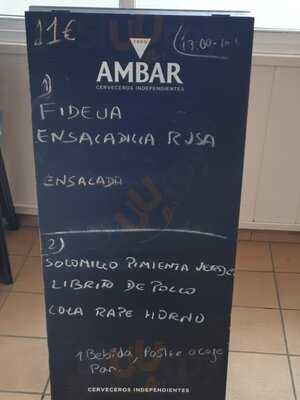 11€
(13:00-
1900
AMBAR
CERVECEROS INDEPENDIENTES
1)
FIDEUA
ENSALADILLA RUSA
ENSALADA
2)
SOLOMILLO PIMIENTA VERDE
LIBRITO DE POLLO
COLA RAPE HORNO
1 Bebida, Postre o cafe
Pan.
CERVECEROS INDEPENDIENTES